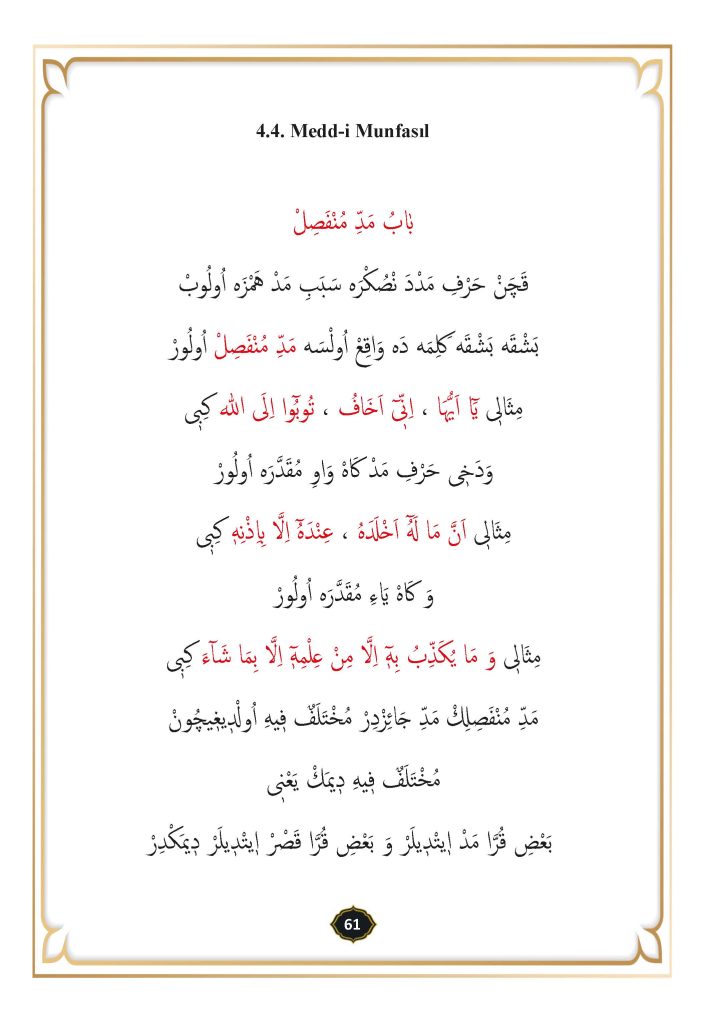 4.4. Medd-i Munfasıl
بَابُ مَدِّ مُنْفَصِلْ
قَچَنْ حَرْفِ مَدْدَ نْصُكْرَه سَبَبِ مَدْ هَمْزَه اُولُوبْ
بَشْقَه بَشْقَه كَلِمَه دَه وَاقِعْ اُولْسَه مَدِّ مُنْفَصِلْ اُولُورْ
مِثَالِى يَٓا اَيُّهَا ، اِنّ۪ٓى اَخَافُ ، تُوبُٓوا اِلَى الله كِبِى
وَدَخِى حَرْفِ مَدْ كَاهْ وَاوِ مُقَدَّرَه اُولُورْ
مِثَالِى اَنَّ مَا لَهُٓ اَخْلَدَهُ ، عِنْدَهُٓ اِلَّا بِاِذْنِه۪ كِبِى
وَ كَاهْ يَاءِ مُقَدَّرَه اُولُورْ
مِثَالِى وَ مَا يُكَذِّبُ بِه۪ٓ اِلَّا مِنْ عِلْمِه۪ٓ اِلَّا بِمَا شَٓاءَ كِبِى
مَدِّ مُنْفَصِلِكْ مَدِّ جَائِزْدِرْ مُخْتَلَفٌ ف۪يهِ اُولْد۪يغ۪يچُونْ
مُخْتَلَفٌ ف۪يهِ د۪يمَكْ يَعْن۪ى
بَعْضِ قُرَّا مَدْ ا۪يتْد۪يلَرْ وَ بَعْضِ قُرَّا قَصْرْ ا۪يتْد۪يلَرْ د۪يمَكْدِرْ
61